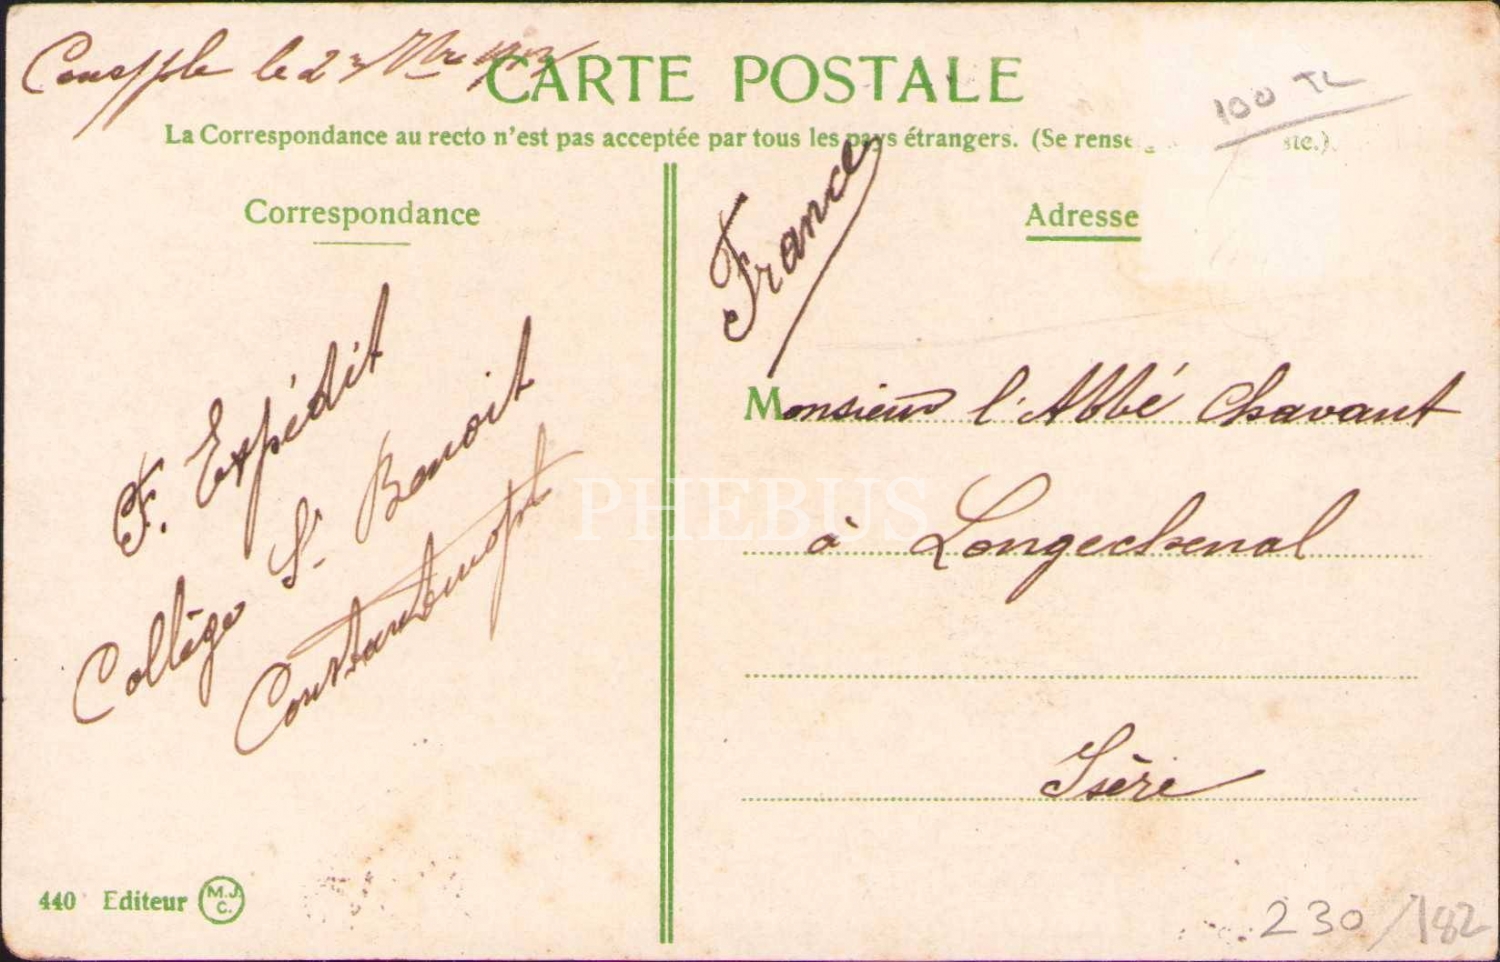 Consple le 23 1913
CARTE POSTALE
100 TL
La Correspondance au recto n'est pas acceptée par tous les pays étrangers. (Se rense ste.).
Correspondance
Adresse
France
F. Expédit
Collège St. Benoit
Constantinople
Monsieur l'Abbé Chavant
à Longechenal
Isère
PHEBUS
440 Editeur M.J.C.
230/182